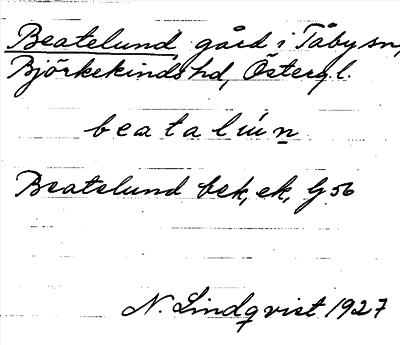 Beatelund, gård i Tåby sn,
Björkekinds hd, Östergl.
beatalún
Beatelund bek, ek, G 56
N. Lindqvist 1927